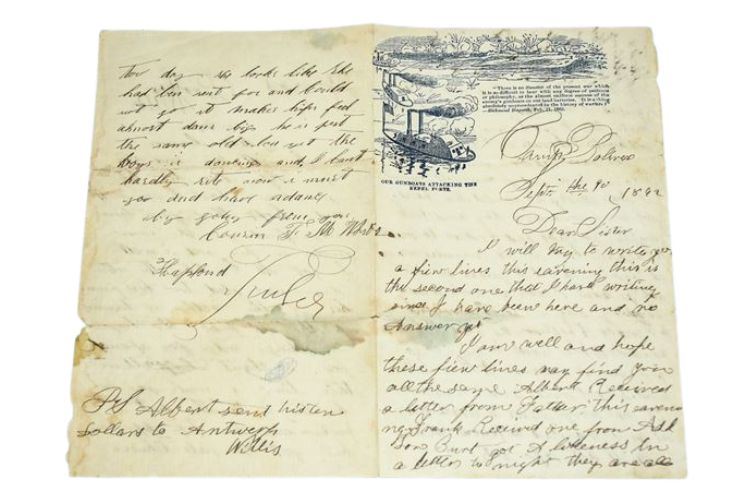 to day he looks like he
had ben sent for and could
not go it makes him feel
almost dam big he is just
the same old the
boys is dancing and I can't
hardly rite now i must
go and have a dance
by from you
Cousin T. M.

PS Albert sent his ten
Dollars to Antwerp
Willis
"There is no incident of the present war which
it is so difficult to bear with any degree of patience
or philosophy, as the almost uniform success of the
enemy's gunboats on our land batteries. It is a thing
absolutely unprecedented in the history of warfare."
—Richmond Dispatch, Feb. 21, 1862.
OUR GUNBOATS ATTACKING THE
REBEL FORTS.
Camp
Sept. the 1862
Dear Sister
I will try to write you
a fiew lines this eavening this is
the second one that I have writing
since I have been here and no
Answer yet
I am well and hope
these fiew lines may find you
all the same Albert Received
a letter from Father this eaveni
ng Frank Received one from Ash
Burt got A likeness In
a letter to night they are all